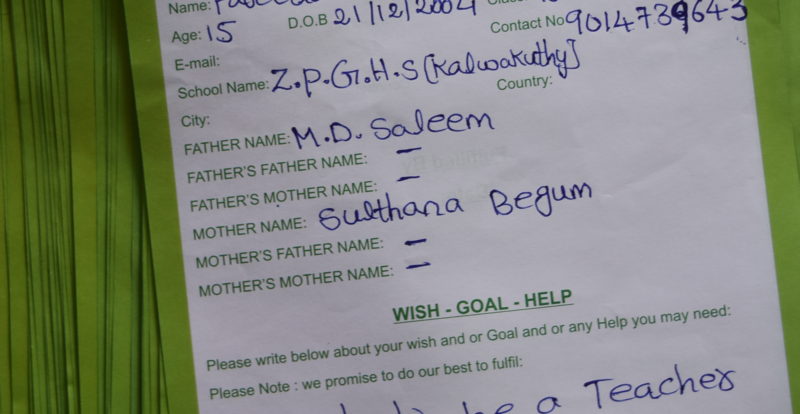 Name:
Age: 15 D.O.B 21/12/2004 Contact No 9014739643
E-mail:
School Name: Z.P.G.H.S (Kalwakuthy)
City: Country:
FATHER NAME: M.D. Saleem
FATHER'S FATHER NAME: –
FATHER'S MOTHER NAME: –
MOTHER NAME: Sulthana Begum
MOTHER'S FATHER NAME: –
MOTHER'S MOTHER NAME: –
WISH - GOAL - HELP
Please write below about your wish and or Goal and or any Help you may need:
Please Note : we promise to do our best to fulfil:
be a Teacher